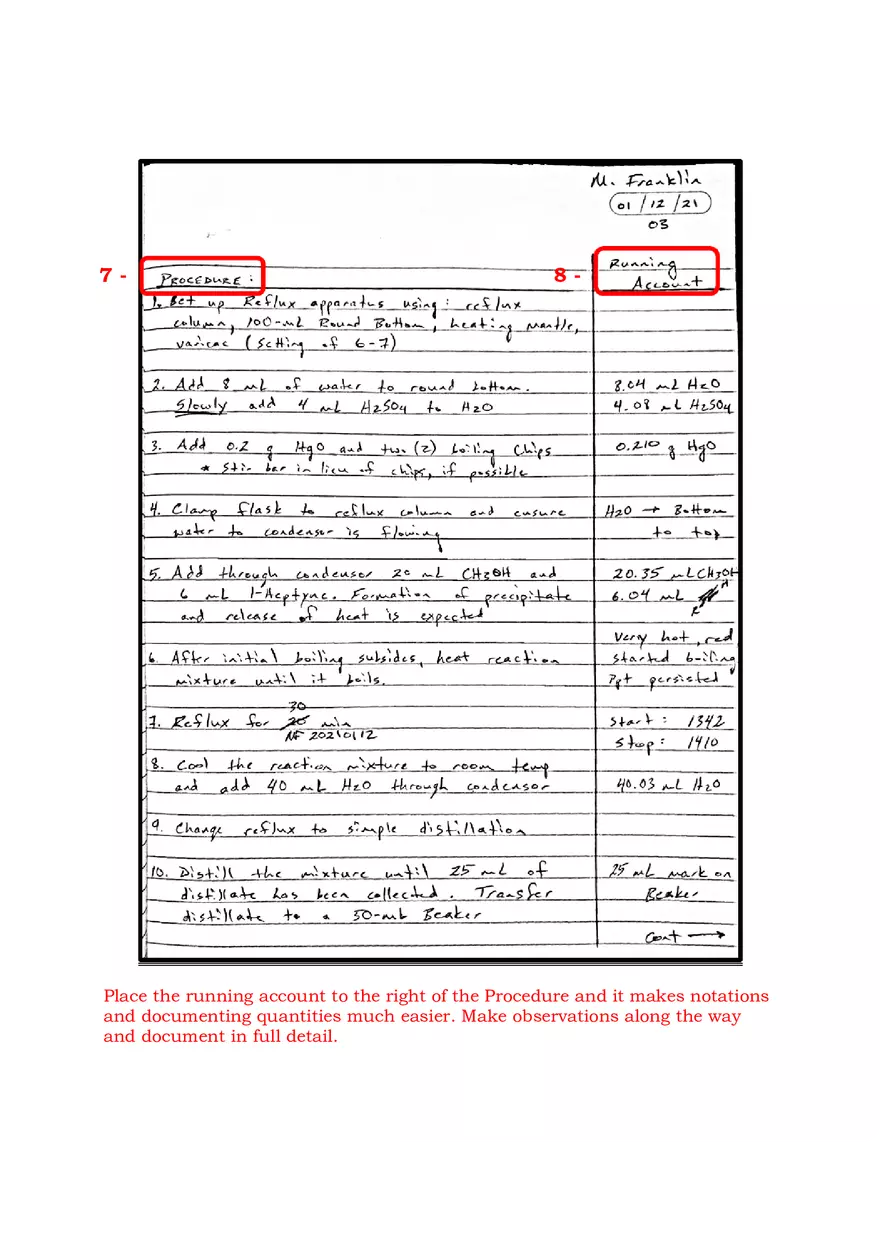 M. Franklin
01/12/21
03
7 -
PROCEDURE :
8 -
Running
Account
1. Set up Reflux apparatus using : reflux
column, 100-mL Round Bottom, heating mantle,
variac (setting of 6-7)
2. Add 8 mL of water to round bottom.
8.04 mL H2O
Slowly add 4 mL H2SO4 to H2O
4.08 mL H2SO4
3. Add 0.2 g HgO and two (2) boiling chips
0.210 g HgO
* Stir bar in lieu of chips, if possible
4. Clamp flask to reflux column and ensure
H2O → Bottom
water to condensor is flowing
to top
5. Add through condensor 20 mL CH3OH and
20.35 mL CH3OH
6 mL 1-Heptyne. Formation of precipitate
6.04 mL
and release of heat is expected
Very hot, red
6. After initial boiling subsides, heat reaction
started boiling
mixture until it boils.
Ppt persisted
30
7. Reflux for 20 min
Start : 1342
MF 20210112
Stop : 1410
8. Cool the reaction mixture to room temp
and add 40 mL H2O through condensor
40.03 mL H2O
9. Change reflux to simple distillation
10. Distill the mixture until 25 mL of
25 mL mark on
distillate has been collected. Transfer
Beaker
distillate to a 50-mL Beaker
Cont →
Place the running account to the right of the Procedure and it makes notations
and documenting quantities much easier. Make observations along the way
and document in full detail.